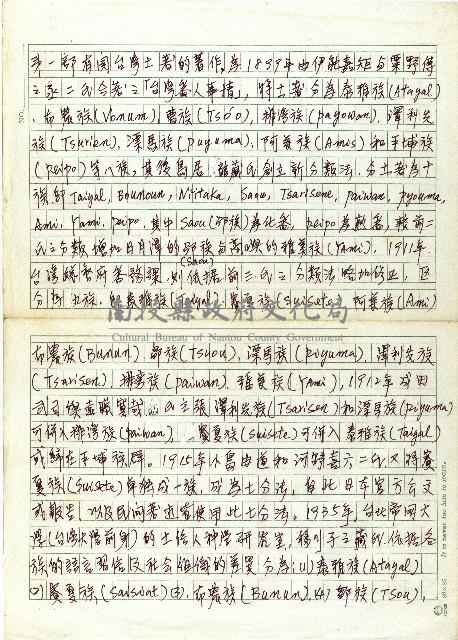 第一部有関台湾土著的著作,為1899年由伊能嘉矩與粟野傳
之丞二氏合著之「台湾蕃人事情」,將土著分為泰雅族(Atayal)
、布農族(Vonum),曹族(Tso'o),排灣族(payowan),澤利先
族(Tsurien),漂馬族(puyuma),阿美族(Amis)和平埔族
(peipo)等八族,其後鳥居龍藏氏創立新分類法,分土著為十
族,即Taiyal, Bounoun, Niitaka, Saou, Tsarisene, paiwan, pyouma,
Ami, Yami, peipo,其中Saou(邵族)為化番,peipo為熟番,較前二
氏之分類,增加日月潭的邵族與蘭嶼的雅美族(YAmi), 1911年
(Shou)
台湾總督府蕃務課,則依据前三氏之分類法略加修正,區
分為九族,即泰雅族(Taiyal),賽夏族(Suisete),阿美族(Ami)
南投縣政府文化局
Cultural Bureau of Nantou County Government
布農族(Bunun),鄒族(Tsuou),漂馬族(piyuma),澤利先族
(Tsarisen),排灣族(paiwan),雅美族(YAmi), 1912年
主張澤利先族(Tsarisen)和漂馬族(piyuma)
可併入排灣族(paiwan),賽夏族(Suisete)可併入泰雅族(Taiyal)
或歸在平埔族群。1915年小島由道和河野喜六二氏又将賽
夏族(Suisete)単独成一族,成為七分法,自此日本官方公文
或報告,以及民间著述皆使用此七分法。1935年,台北帝國大
學(台湾大学前身)的土俗人种学研究室,移川子之藏氏依据各
族的語言習俗及社会組織的差異分為(1)泰雅族(Atayal)
(2)賽夏族(Saisiat)(3)布農族(Bunun),(4)鄒族(Tsou),